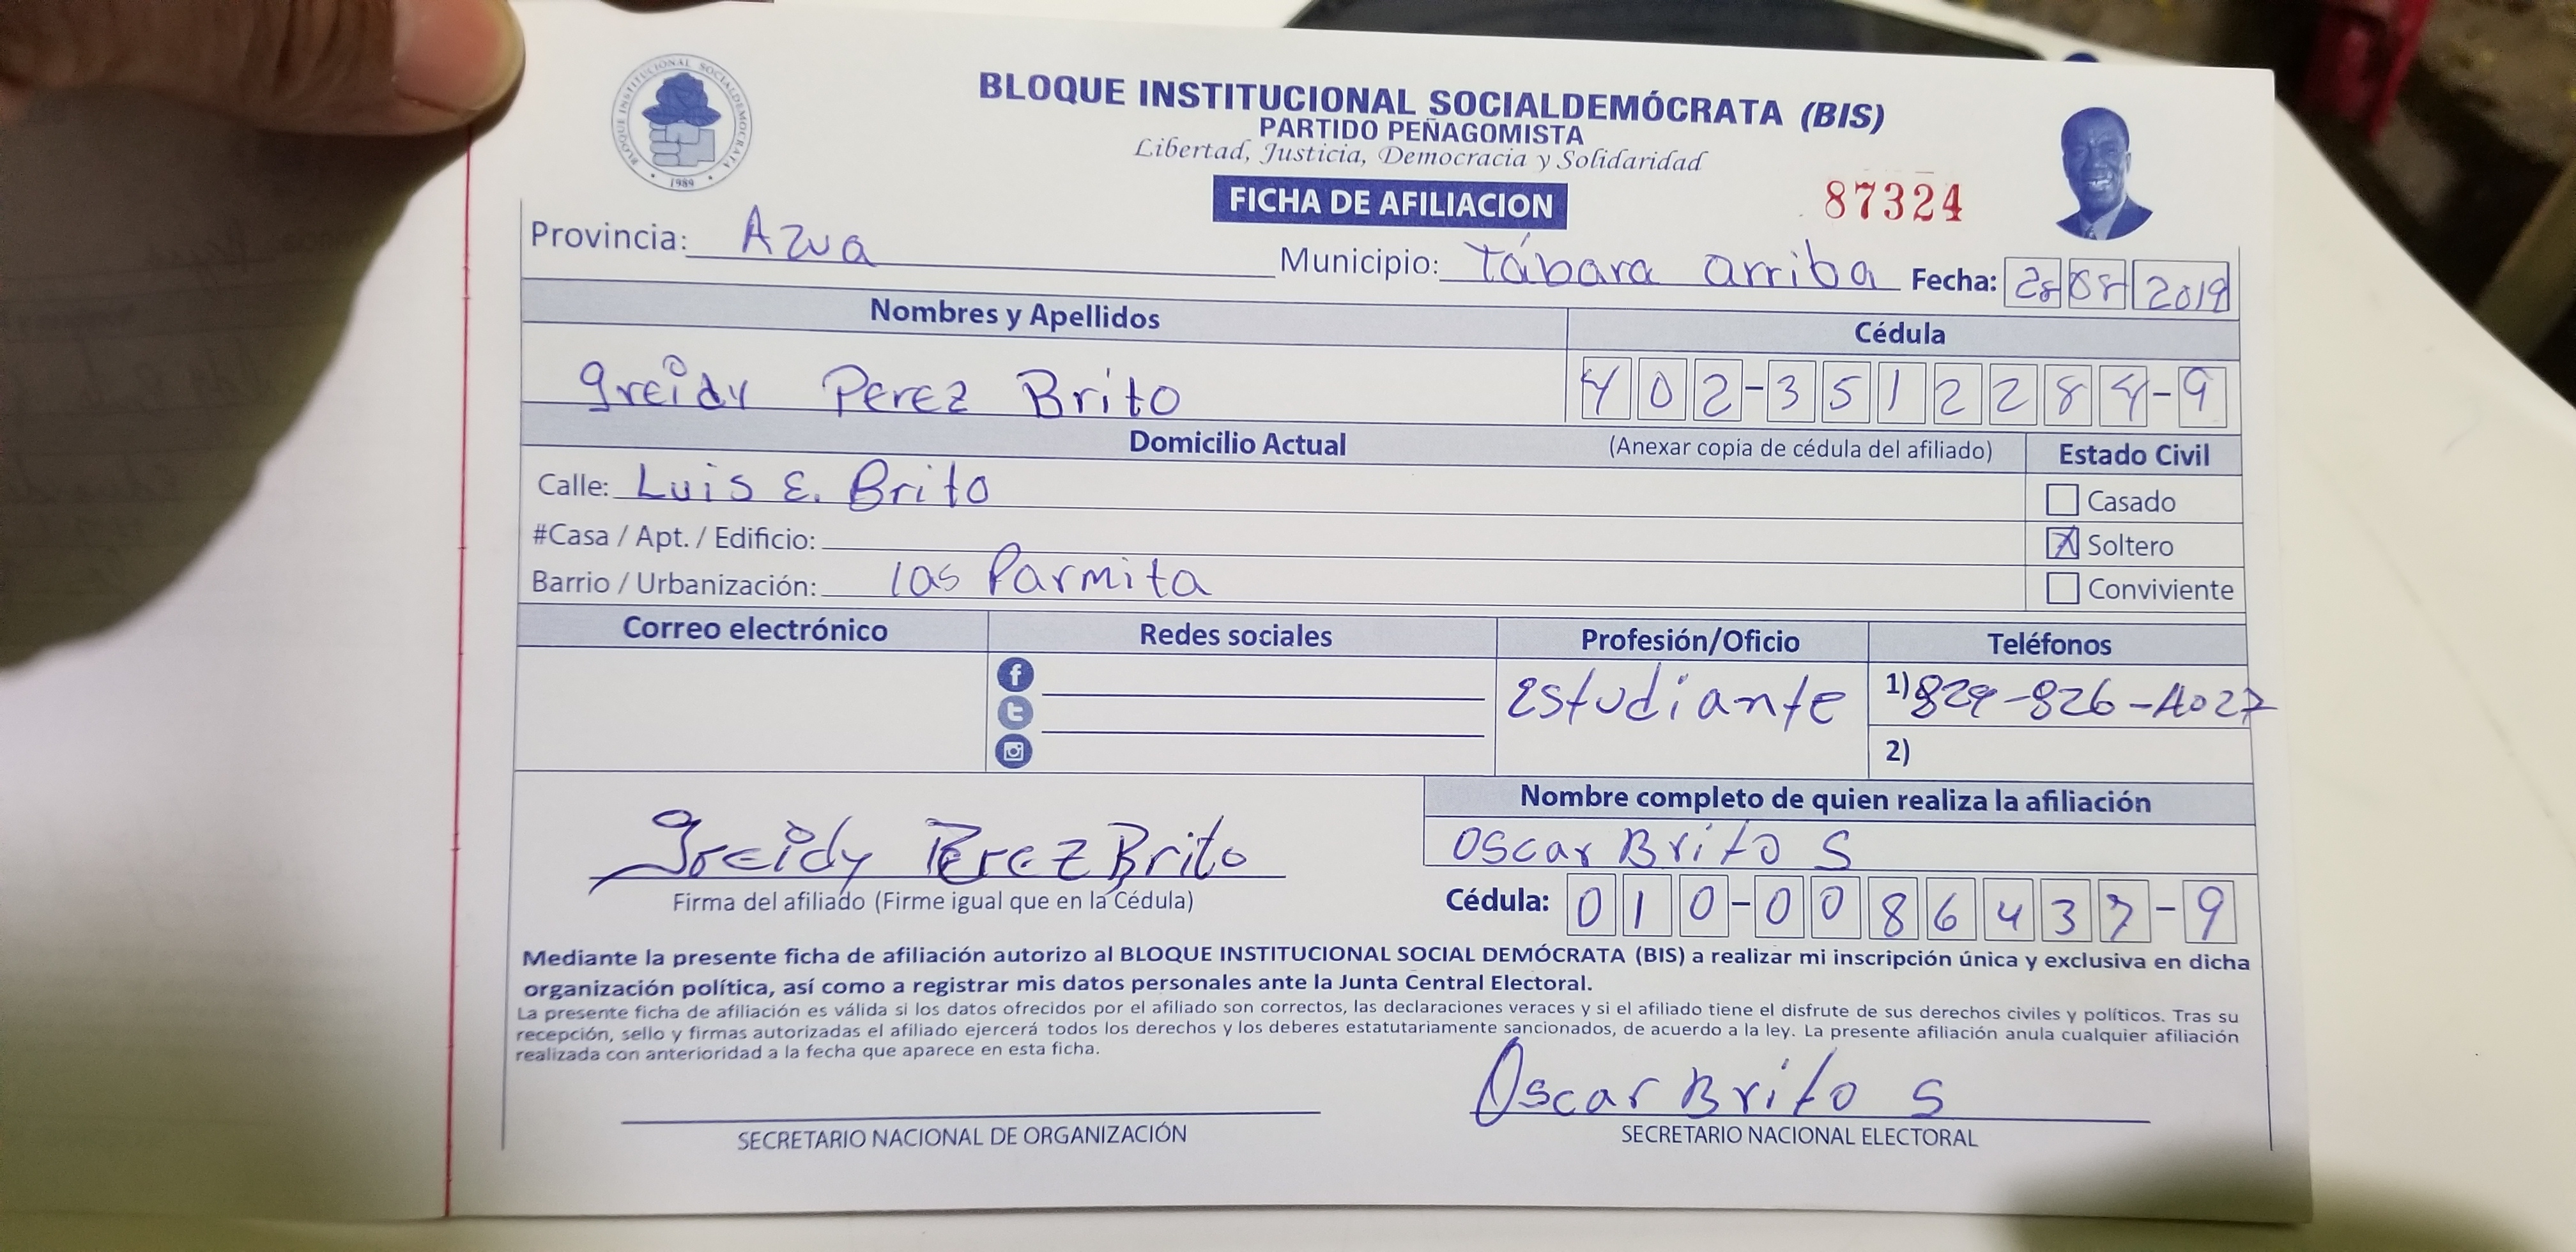 BLOQUE INSTITUCIONAL SOCIALDEMOCRATA
1989
BLOQUE INSTITUCIONAL SOCIALDEMÓCRATA (BIS)
PARTIDO PEÑAGOMISTA
Libertad, Justicia, Democracia y Solidaridad
FICHA DE AFILIACION
87324
Provincia: Azua Municipio: Tábara arriba Fecha: 28 08 2019
Nombres y Apellidos Cédula
greidy Perez Brito 402-3512284-9
Domicilio Actual (Anexar copia de cédula del afiliado) Estado Civil
Calle: Luis E. Brito
Casado
#Casa / Apt. / Edificio:
X Soltero
Barrio / Urbanización: las Parmita
Conviviente
Correo electrónico Redes sociales Profesión/Oficio Teléfonos
f
t
Estudiante
1) 829-826-4027
2)
Nombre completo de quien realiza la afiliación
Oscar Brito S
Greidy Perez Brito
Firma del afiliado (Firme igual que en la Cédula)
Cédula: 010-0086437-9
Mediante la presente ficha de afiliación autorizo al BLOQUE INSTITUCIONAL SOCIAL DEMÓCRATA (BIS) a realizar mi inscripción única y exclusiva en dicha
organización política, así como a registrar mis datos personales ante la Junta Central Electoral.
La presente ficha de afiliación es válida si los datos ofrecidos por el afiliado son correctos, las declaraciones veraces y si el afiliado tiene el disfrute de sus derechos civiles y políticos. Tras su
recepción, sello y firmas autorizadas el afiliado ejercerá todos los derechos y los deberes estatutariamente sancionados, de acuerdo a la ley. La presente afiliación anula cualquier afiliación
realizada con anterioridad a la fecha que aparece en esta ficha.
Oscar Brito S
SECRETARIO NACIONAL DE ORGANIZACIÓN
SECRETARIO NACIONAL ELECTORAL